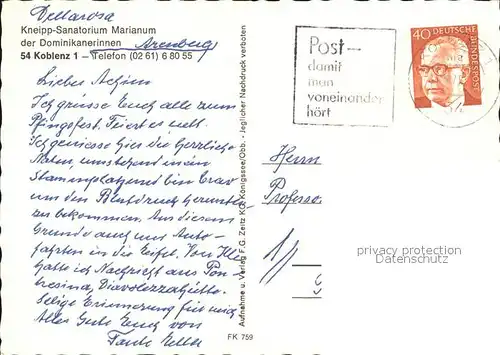 Kneipp-Sanatorium Marianum
der Dominikanerinnen Arenberg
54 Koblenz 1 – Telefon (02 61) 6 80 55
Lieber Achim
Ich grüsse Euch alle zum
Pfingstfest. Feiert es nett.
Ich geniesse hier die herrliche
Natur, umstehend mein
Stammplatz und bin brav
um den Blutdruck herunter
zu bekommen. Aus diesem
Grunde auch nur Auto-
fahrten in die Eifel. Von
hatte ich Nachricht aus Pon-
tresina, Diavolezzahütte.
Selige Erinnerung für mich
Alles Gute Euch von
Tante
Aufnahme u. Verlag F.G. Zeitz KG, Königssee/Obb. - Jeglicher Nachdruck verboten
FK 759
Post–
damit
man
voneinander
hört
40 DEUTSCHE
BUNDESPOST
Herrn
Professor
privacy protection
Datenschutz